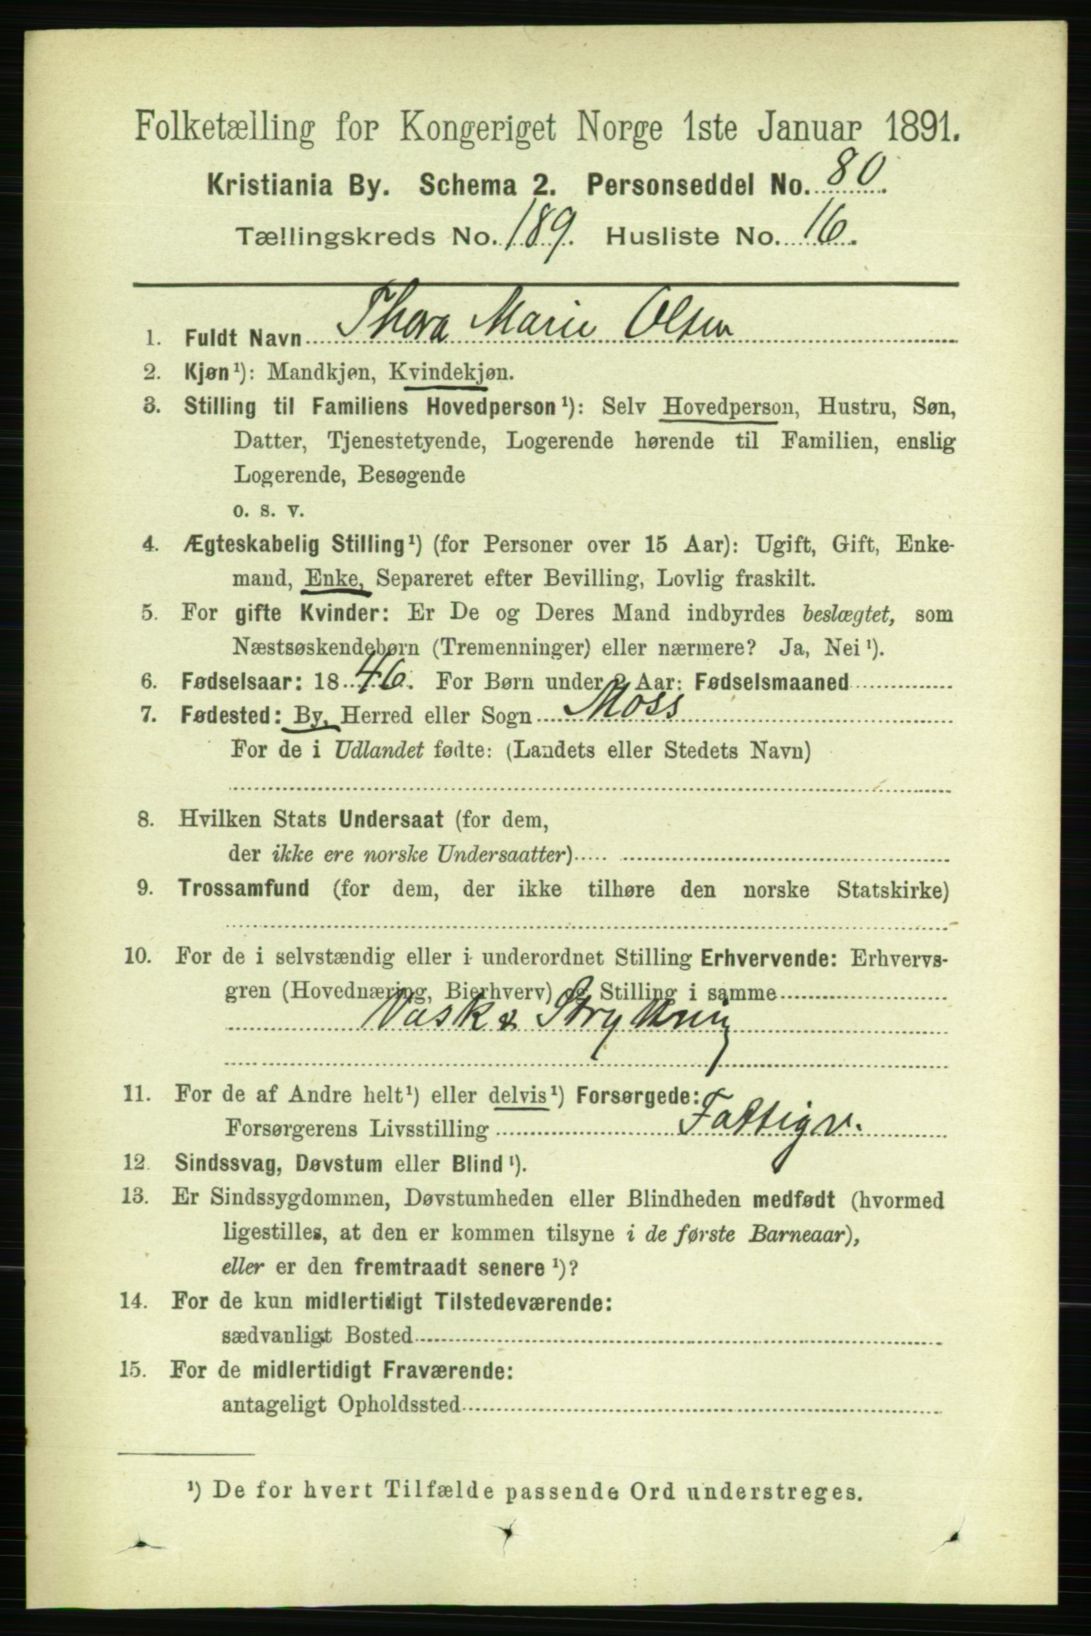 Folketælling for Kongeriget Norge 1ste Januar 1891.
Kristiania By. Schema 2. Personseddel No. 80.
Tællingskreds No. 189. Husliste No. 16.
1. Fuldt Navn Thora Marie Olsen
2. Kjøn¹): Mandkjøn, Kvindekjøn.
3. Stilling til Familiens Hovedperson¹): Selv Hovedperson, Hustru, Søn,
Datter, Tjenestetyende, Logerende hørende til Familien, enslig
Logerende, Besøgende
o. s. v.
4. Ægteskabelig Stilling¹) (for Personer over 15 Aar): Ugift, Gift, Enke-
mand, Enke, Separeret efter Bevilling, Lovlig fraskilt.
5. For gifte Kvinder: Er De og Deres Mand indbyrdes beslægtet, som
Næstsøskendebørn (Tremenninger) eller nærmere? Ja, Nei¹).
6. Fødselsaar: 1846. For Børn under 2 Aar: Fødselsmaaned
7. Fødested: By, Herred eller Sogn Moss
For de i Udlandet fødte: (Landets eller Stedets Navn)
8. Hvilken Stats Undersaat (for dem,
der ikke ere norske Undersaatter)
9. Trossamfund (for dem, der ikke tilhøre den norske Statskirke)
10. For de i selvstændig eller i underordnet Stilling Erhvervende: Erhvervs-
gren (Hovednæring, Bierhverv) og Stilling i samme
Vask & Strykning
11. For de af Andre helt¹) eller delvis¹) Forsørgede:
Forsørgerens Livsstilling Fattigv.
12. Sindssvag, Døvstum eller Blind¹).
13. Er Sindssygdommen, Døvstumheden eller Blindheden medfødt (hvormed
ligestilles, at den er kommen tilsyne i de første Barneaar),
eller er den fremtraadt senere¹)?
14. For de kun midlertidigt Tilstedeværende:
sædvanligt Bosted
15. For de midlertidigt Fraværende:
antageligt Opholdssted
¹) De for hvert Tilfælde passende Ord understreges.